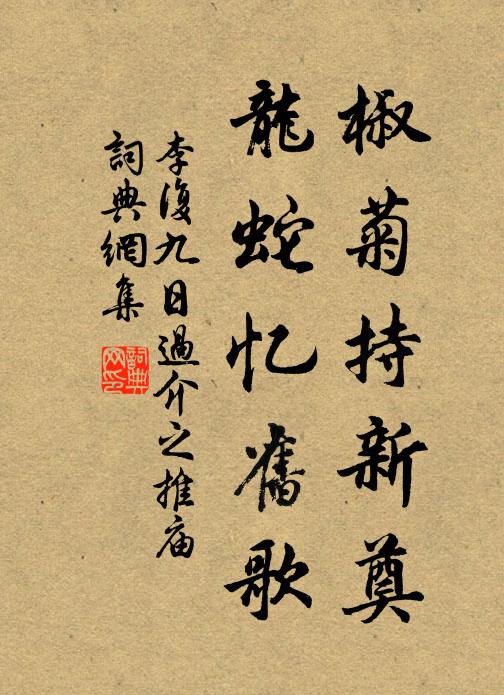 椒菊持新奠
龍蛇忆舊歌
李復九日過介之推庙
詞典網集
詞典網印